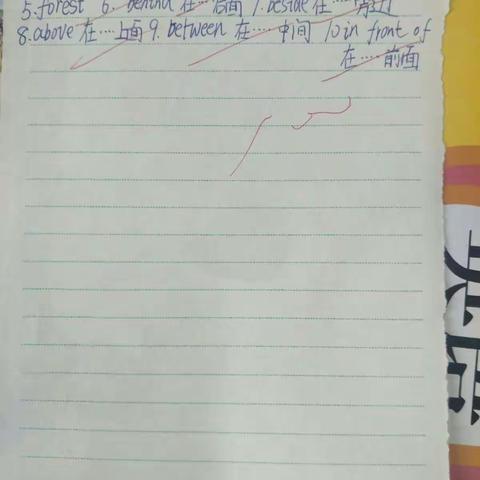 5.forest 6. behind 在…后面 7.beside在…旁边
8.above 在…上面 9. between 在…中间 10 in front of
在…前面